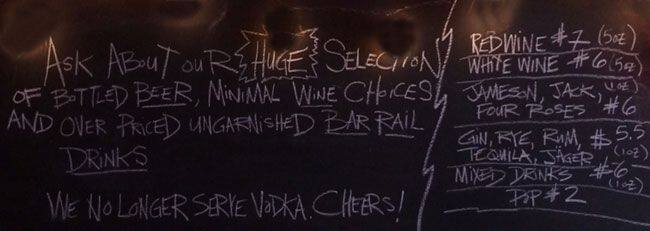 ASK ABOUT OUR HUGE SELECTION
OF BOTTLED BEER, MINIMAL WINE CHOICES
AND OVER PRICED UNGARNISHED BAR RAIL
DRINKS
WE NO LONGER SERVE VODKA. CHEERS!
RED WINE $7 (5oz)
WHITE WINE $6 (5oz)
JAMESON, JACK, (1oz)
FOUR ROSES $6
GIN, RYE, RUM, $5.5
TEQUILA, JAGER (1oz)
MIXED DRINKS $6 (1oz)
POP $2